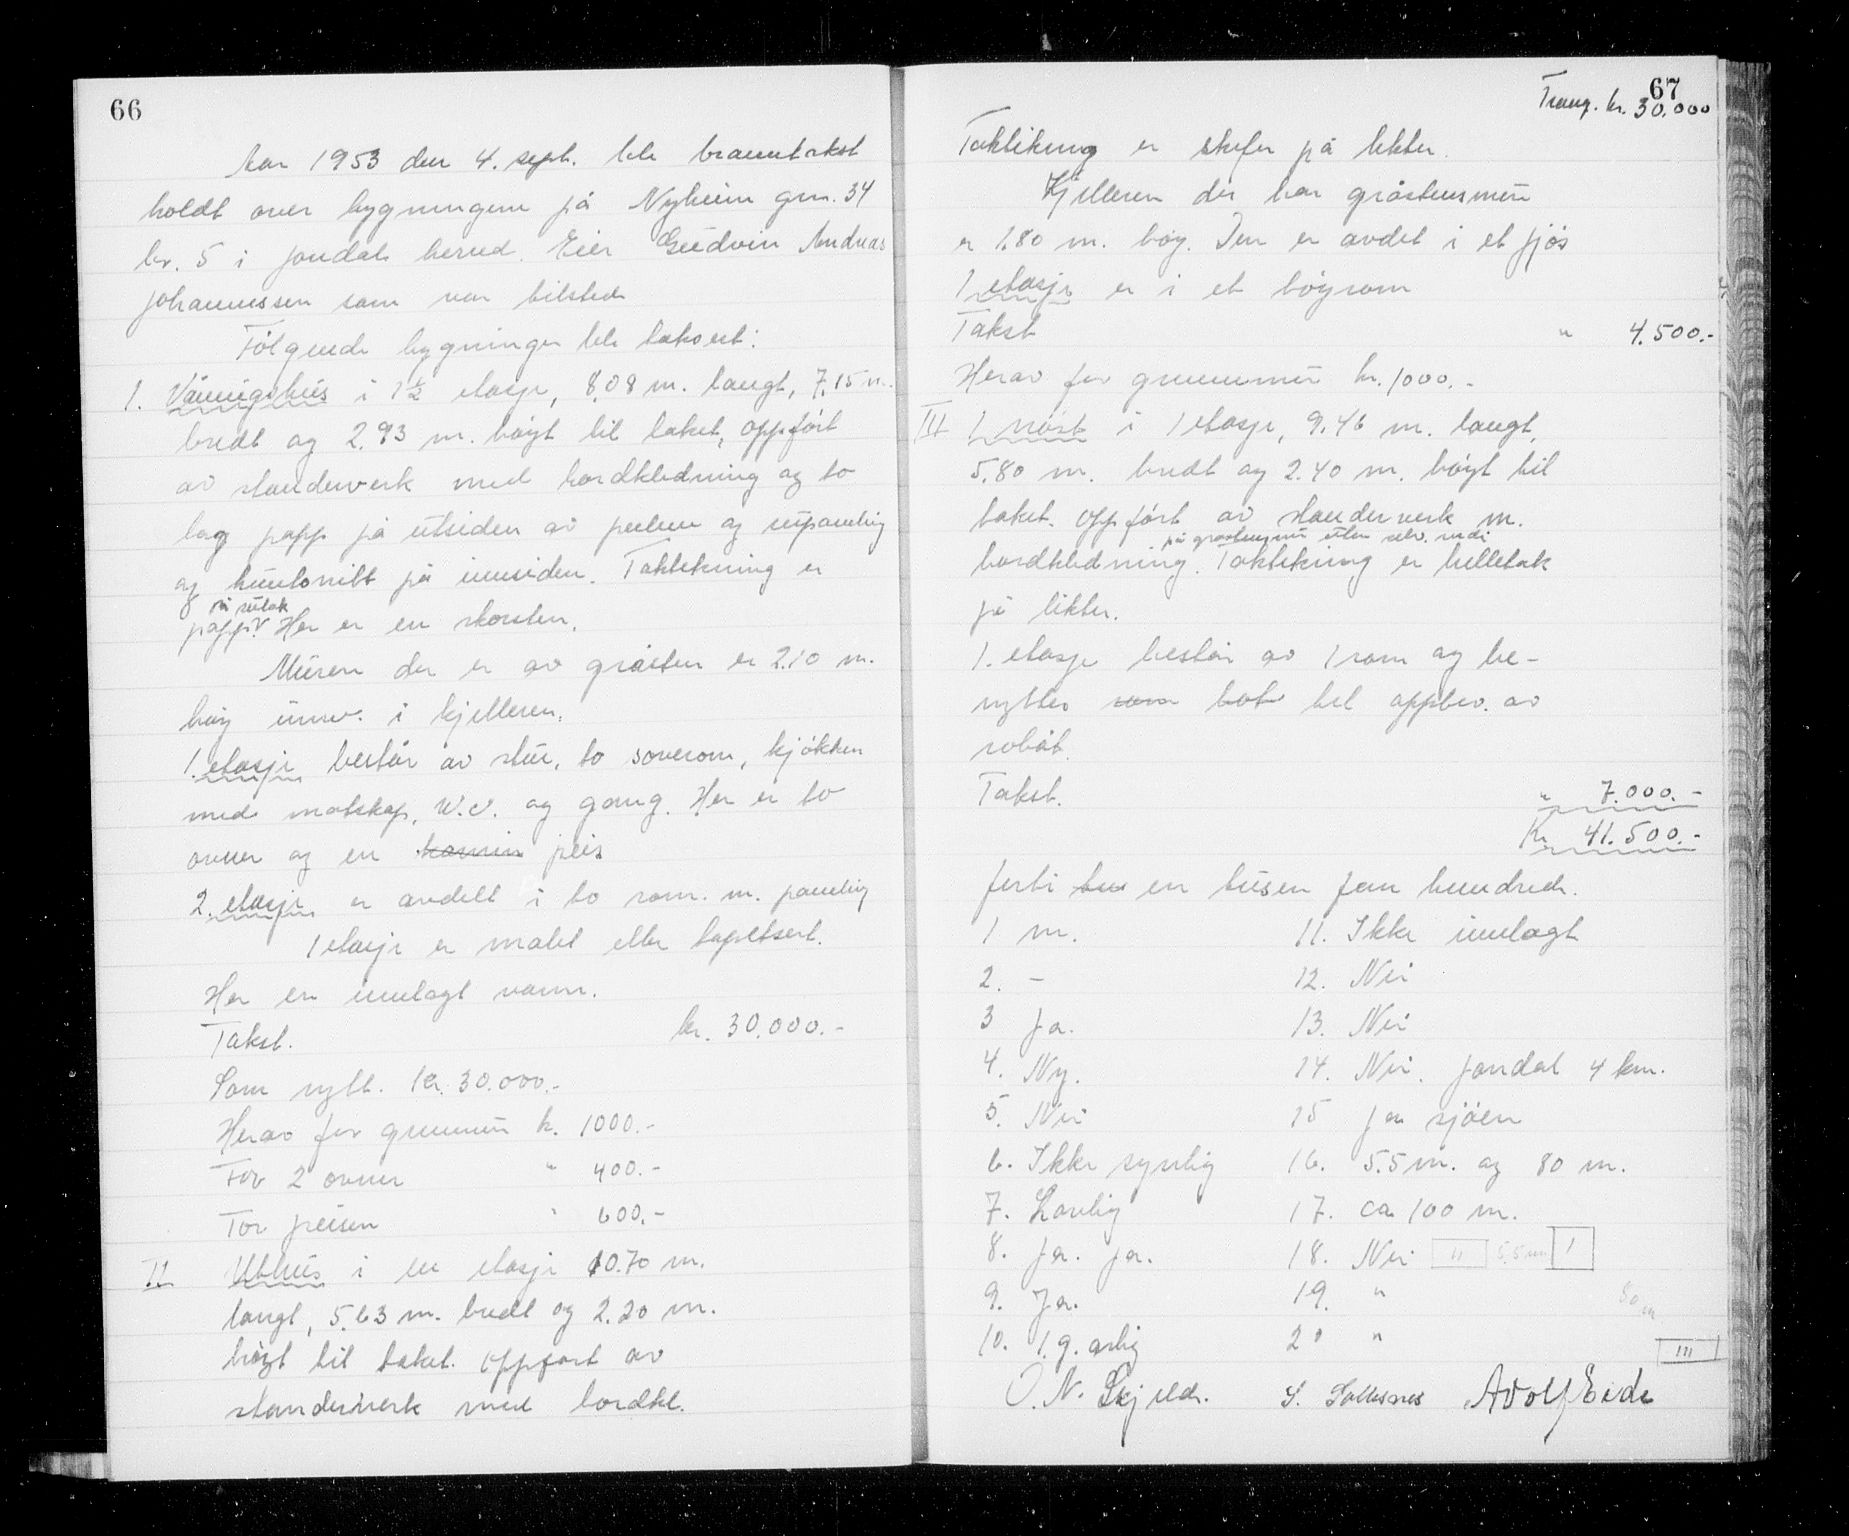 66
Aar 1953 den 4. sept. ble branntakst
holdt over bygningene på Nyheim grn. 34
br. 5 i Jondal herred. Eier Gudvin Andreas
Johannessen som var tilstede
Følgende bygninger ble taksert:
1. Våningshus i 1½ etasje, 8,08 m. langt, 7,15 m.
bredt og 2.93 m. høgt til taket, oppført
av standerverk med bordkledning og to
lag papp på utsiden av perlene og rupaneling
og huntonitt på innsiden. Taktekning er
på sutak
papp. Her er en skorsten.
Muren der er av gråsten er 2.10 m.
høg innv. i kjelleren.
1. etasje består av stue, to soverom, kjøkken
med matskap, W.C. og gang. Her er to
ovner og en kamin peis
2. etasje er avdelt i to rom. m. paneling
1 etasje er malet eller tapetsert.
Her er innlagt vann.
Takst. kr. 30.000.-
Som nytt. kr. 30.000.-
Herav for grunnmur kr. 1000.-
For 2 ovner " 400.-
For peisen " 600.-
II Uthus i en etasje 10.70 m.
langt, 5.63 m. bredt og 2.20 m.
høgt til taket. Oppført av
standerverk med bordkl.
67
Trang. kr. 30.000
Taktekning er skifer på lekter.
Kjelleren der har gråstensmur
er 1.80 m. høg. Den er avdelt i et fjøs
1 etasje er i et høyrom
Takst " 4.500.-
Herav for grunnmur kr. 1000.-
III 1 nøst i 1 etasje, 9.46 m. langt,
5.80 m. bredt og 2.40 m. høgt til
taket. Oppført av standerverk m.
på gråstensmur uten selv. verdi
bordkledning. Taktekning er helletak
på lekter.
1. etasje består av 1 rom og be-
nyttes som båt til oppbev. av
robåt.
Takst. " 7.000.-
Kr 41.500.-
førti tus en tusen fem hundrede.
1 m.
2. -
3 Ja.
4. Ny.
5. Nei
6. Ikke synlig
7. Lovlig
8. Ja. Ja.
9. Ja.
10. 1. g. årlig
11. Ikke innlagt
12. Nei
13. Nei
14. Nei. Jondal 4 km.
15 Ja sjøen
16. 5.5 m. og 80 m.
17. ca 100 m.
18. Nei II 5,5 m I
19. " 80 m
20 " III
O. N. Skjelde. S. Solesnes Adolf Eide